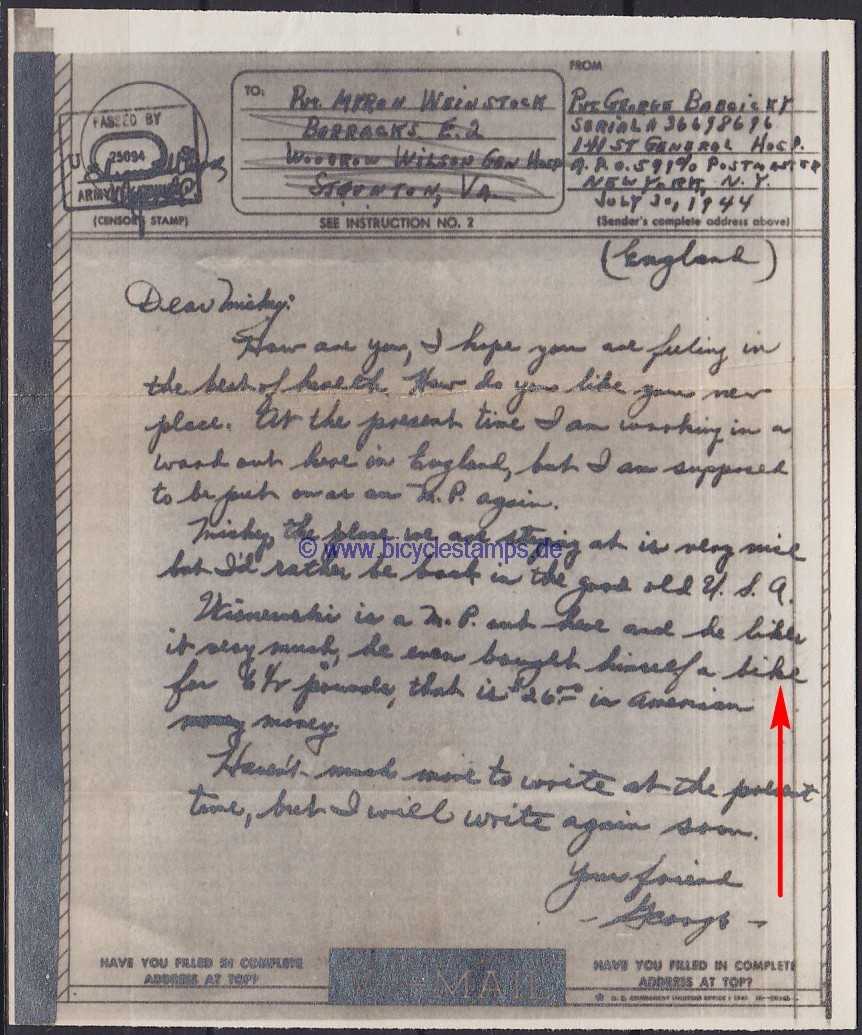 PASSED BY
U S
25094
ARMY
(CENSOR'S STAMP)
TO:
Pvt. MYRON WEINSTOCK
BARRACKS E.2
WOODROW WILSON GEN HOSP
STAUNTON, VA
SEE INSTRUCTION NO. 2
FROM
Pvt. GEORGE
SERIAL # 36698696
141 ST GENERAL HOSP.
A.P.O. 5919% POSTMASTER
NEW YORK, N.Y.
JULY 30, 1944
(Sender's complete address above)
(England)
Dear Micky:
How are you, I hope you are feeling in
the best of health. How do you like your new
place. At the present time I am working in a
ward out here in England, but I am supposed
to be put on as an M.P. again.
Micky, the place we are staying at is very nice
but I'd rather be back in the good old U. S. A.
Wisnewski is a M.P. out here and he likes
it very much, he even bought himself a bike
for 6 1/2 pounds, that is $26.00 in American
money.
Haven't much more to write at the present
time, but I will write again soon.
Your friend
- George -
© www.bicyclestamps.de
HAVE YOU FILLED IN COMPLETE
ADDRESS AT TOP?
MAIL
HAVE YOU FILLED IN COMPLETE
ADDRESS AT TOP?